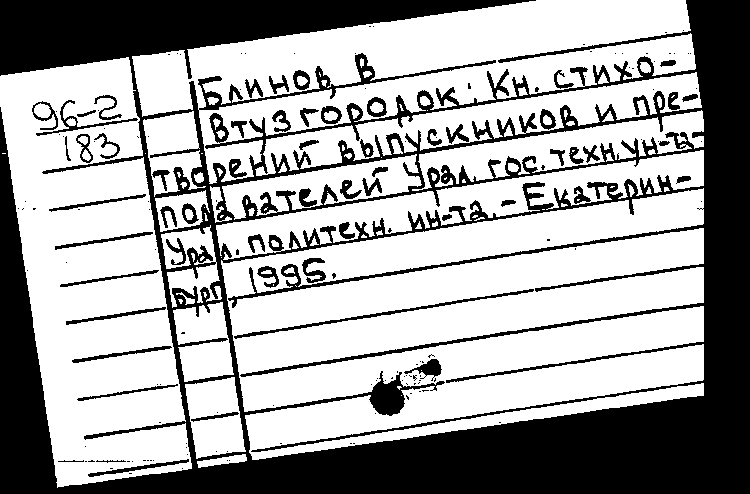 96-2
183
Блинов, В
Втузгородок: Кн. стихо-
творений выпускников и пре-
подавателей Урал. гос. техн. ун-та-
Урал. политехн. ин-та. - Екатерин-
бург, 1995.